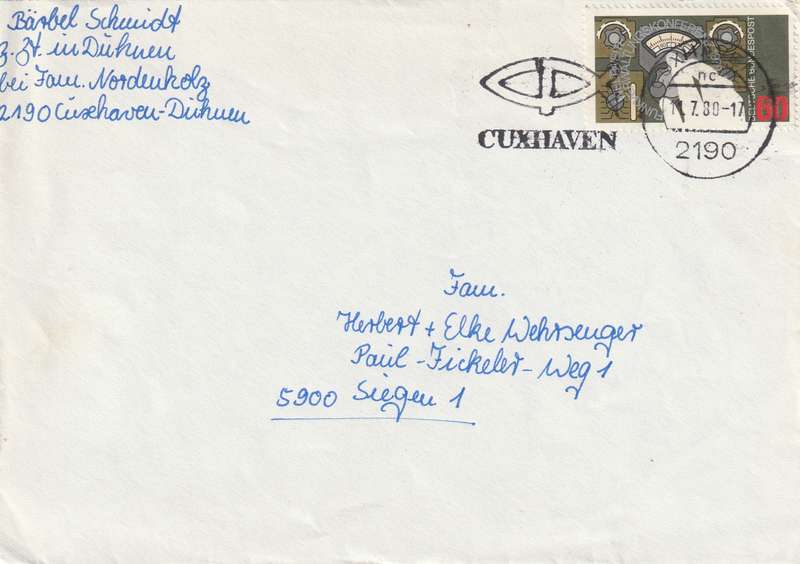 Bärbel Schmidt
z. Zt. in Duhnen
bei Fam. Nordenholz
2190 Cuxhaven-Duhnen
DEUTSCHE BUNDESPOST
60
CUXHAVEN
7.80-17
2190
Fam.
Herbert + Elke Wehrsenger
Paul-Fickeler-Weg 1
5900 Siegen 1